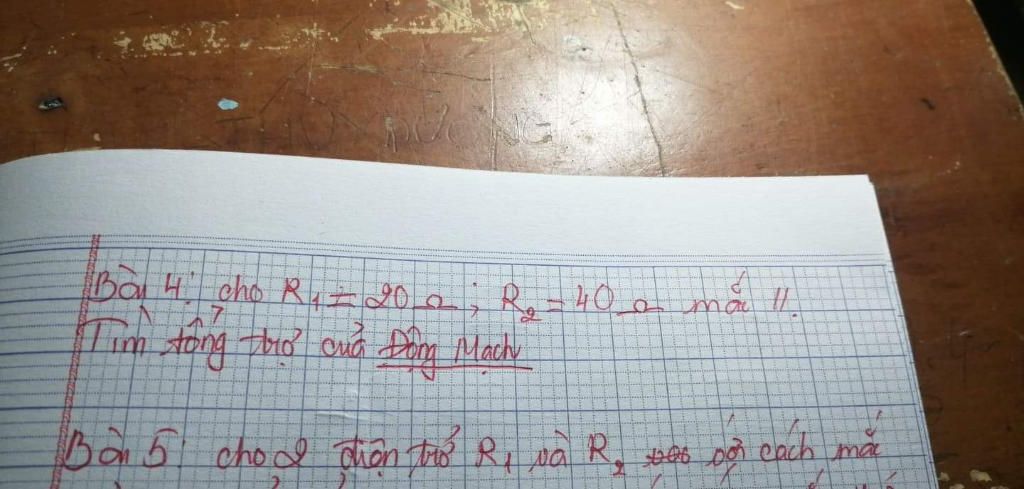 Bài 4: cho R1 = 20 Ω; R2 = 40 Ω mắc //.
Tìm tổng trở của Động Mạch
Bài 5: cho 2 điện trở R1 và R2 với cách mắc